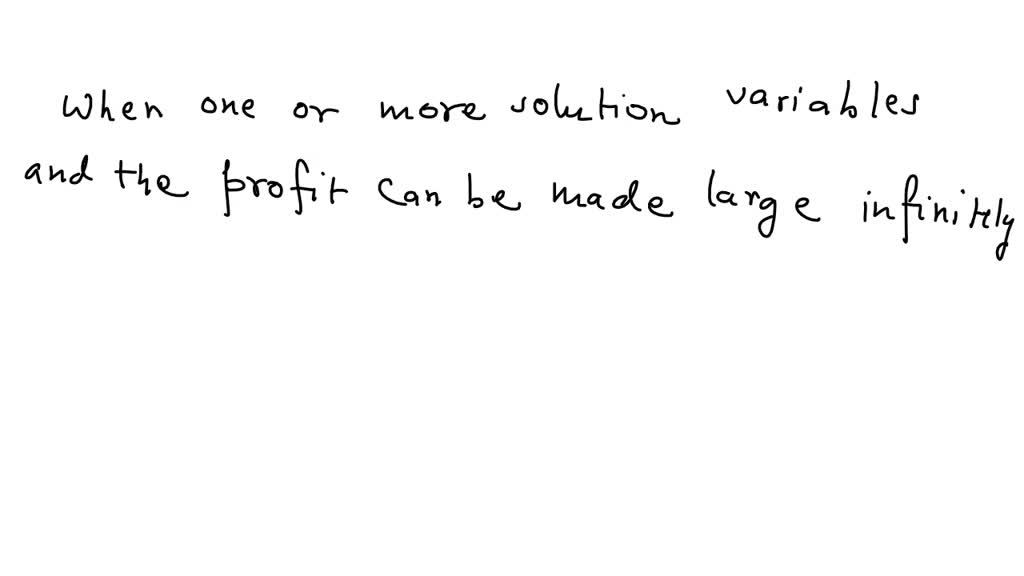 When one or more solution variables
and the profit can be made large infinitely